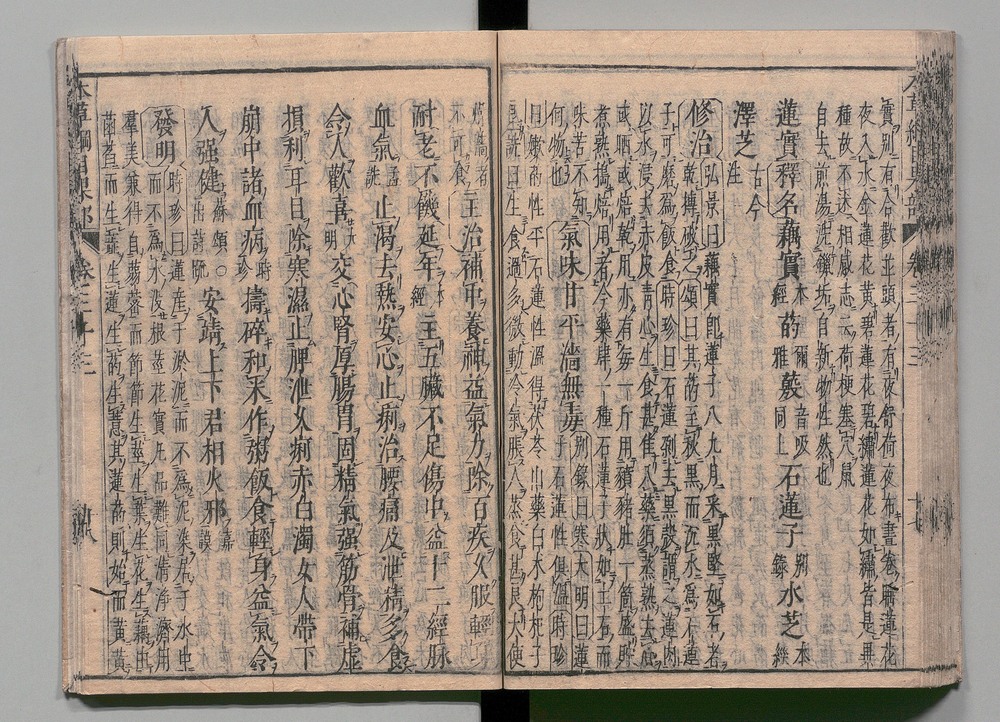 實別有合歡並頭者有夜舒荷夜布晝卷睡蓮花
夜入水金蓮花黃碧蓮花碧繡蓮花如繡皆是異
種故不述相感志云荷梗塞穴鼠
自去煎湯洗鑞垢自新物性然也
蓮實釋名藕實本經菂爾雅薂音吸同上石蓮子別錄水芝本經
澤芝古今注
修治弘景曰藕實即蓮子八九月采黑堅如石者
乾擣破之頌曰其菂至秋黑而沉水為石蓮
子可磨為飯食時珍曰石蓮剁去黑殼謂之蓮肉
以水浸去赤皮青心生食甚佳入藥須蒸熟去心
或晒或焙乾用亦有每一斤用豶豬肚一箇盛貯
煮熟擣焙用者今藥肆一種石蓮子狀如土石而
味苦不知何物也
氣味甘平濇無毒別錄曰寒大明曰蓮
子石蓮性俱溫時珍
曰嫩菂性平石蓮性溫得茯苓山藥白朮枸杞子
良詵曰生食過多微動冷氣脹人蒸食甚良大便
燥濇者
不可食
主治補中養神益氣力除百疾久服輕身
耐老不饑延年本經主五臟不足傷中益十二經脉
血氣孟詵止渴去熱安心止痢治腰痛及泄精多食
令人歡喜大明交心腎厚腸胃固精氣强筋骨補虛
損利耳目除寒濕止脾泄久痢赤白濁女人帶下
崩中諸血病時珍擣碎和米作粥飯食輕身益氣令
人强健蘇頌○出詩疏安靖上下君相火邪嘉謨
發明時珍曰蓮產于淤泥而不為泥染居于水中
而不為水沒根莖花實凡品難同清淨濟用
羣美兼得自蒻蔤而節節生莖生葉生花生藕由
菡萏而生蕊生蓮生菂生薏其蓮菂則始而黃黃